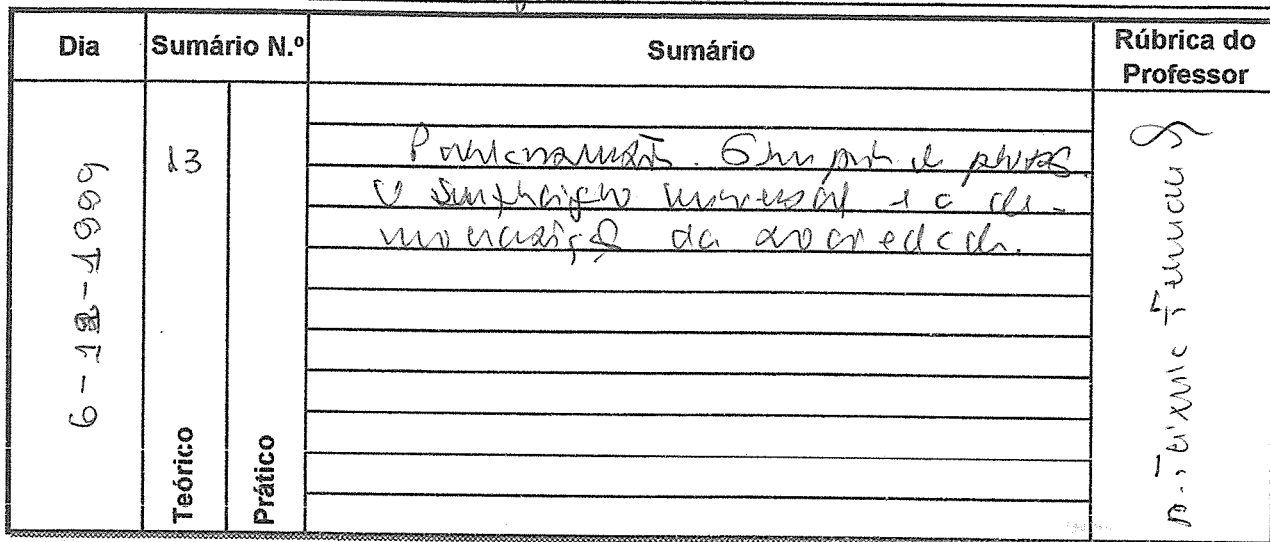 Dia
Sumário N.º
Sumário
Rúbrica do
Professor
6-12-1999
13
Teórico
Prático
Parlamentarização. Grupos de
O sufrágio universal e a de-
mocratização da sociedade.